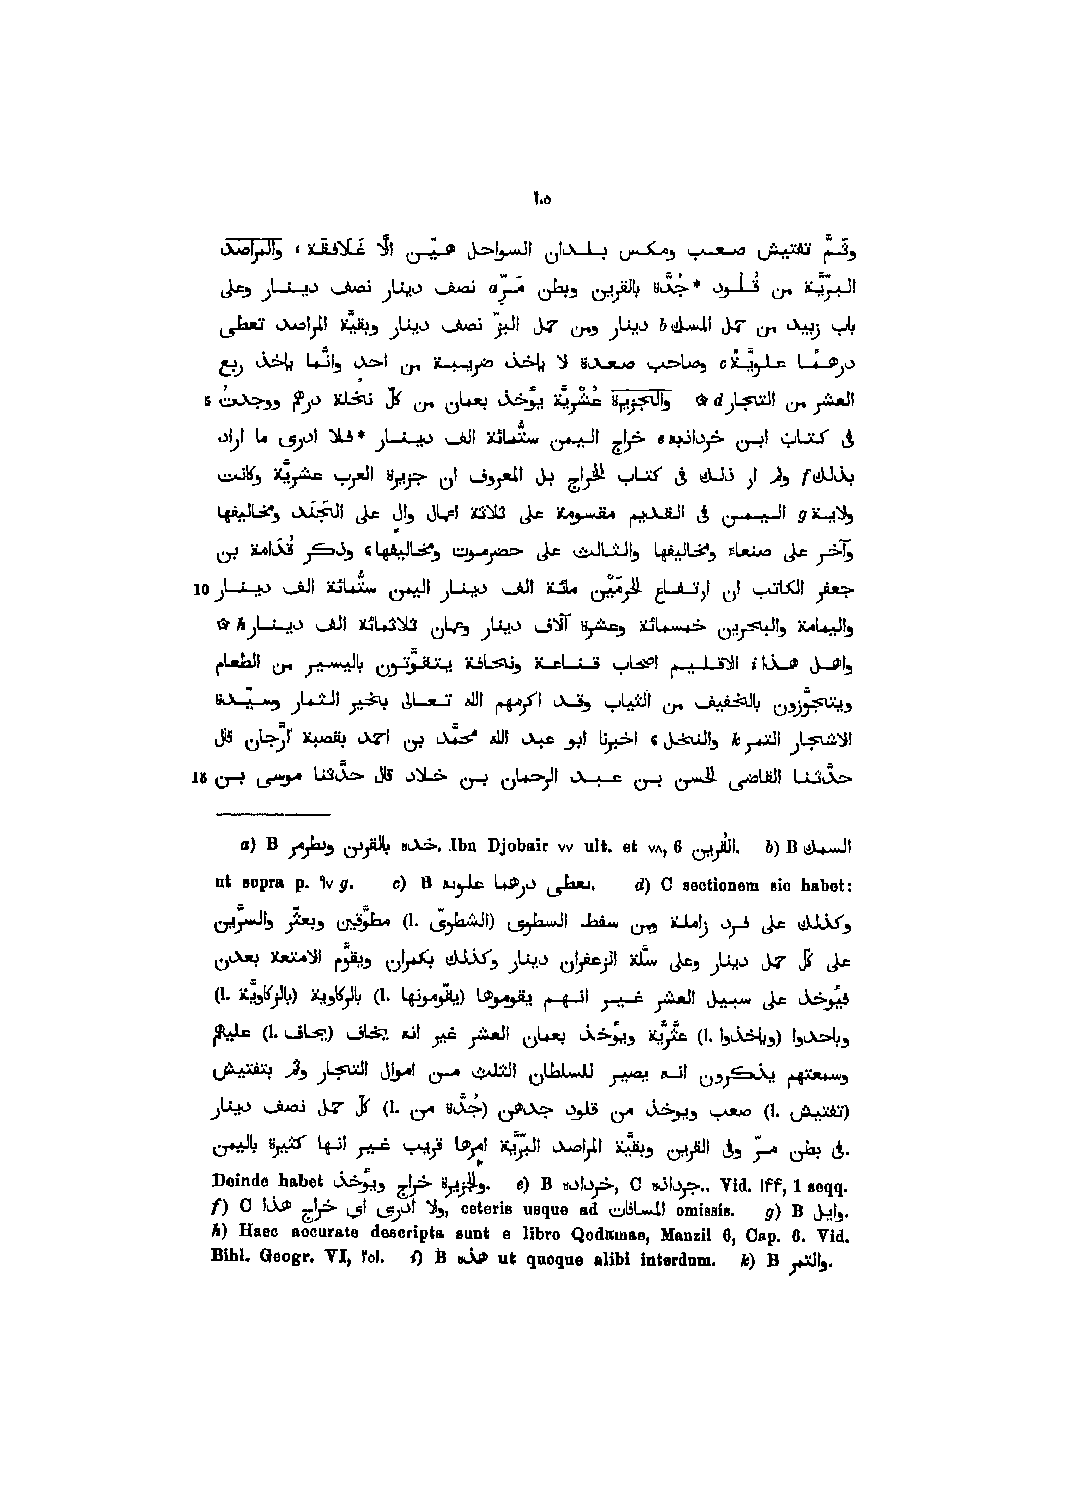 ١٠٥
وثمّ تفتيش صعب ومكس بلدان السواحل هيّن الّا غلافقة، والمراصد
البرّيّة من قلود *جُدّة بالقرين وبطن مَرّ a نصف دينار نصف دينار وعلى
باب زبيد من حمل المسك b دينار ومن حمل البزّ نصف دينار وبقيّة المراصد تعطى
درهمًا علويّة c وصاحب صعدة لا ياخذ ضريبة من احد وانّما ياخذ ربع
العشر من التجار d ✩ والجزيرة عُشْريّة يؤخذ بعمان من كلّ نخلة درهم ووجدتُ 5
فى كتاب ابن خرداذبه e خراج اليمن ستّمائة الف دينار *فلا ادرى ما اراد
بذلك f ولم ار ذلك فى كتاب الخراج بل المعروف ان جزيرة العرب عشريّة وكانت
ولاية g اليمن فى القديم مقسومة على ثلاثة اعمال وال على الجَنَد ومخاليفها
وآخر على صنعاء ومخاليفها والثالث على حضرموت ومخاليفها، وذكر قُدامة بن
جعفر الكاتب ان ارتفاع الحرمَيْن مائة الف دينار اليمن ستّمائة الف دينار 10
واليمامة والبحرين خمسمائة وعشرة آلاف دينار وعمان ثلاثمائة الف دينار h ✩
واهل هذا i الاقليم اصحاب قناعة ونحافة يتقوّتون باليسير من الطعام
ويتجوّزون بالخفيف من الثياب وقد اكرمهم الله تعالى بخير الثمار وسيّدة
الاشجار التمر k والنخل، اخبرنا ابو عبد الله محمّد بن احمد بقصبة ارّجان قال
حدّثنا القاضى الحسن بن عبد الرحمان بن خلاد قال حدّثنا موسى بن 15
a) B خده بالقرىن وبطرمر. Ibn Djobair ٧٧ ult. et ٧٨, 6 القُرين. b) B السمك
ut supra p. ٩٧ g. c) B يعطى درهما علويه. d) C sectionem sic habet:
وكذلك على فرد زاملة ومن سفط السطوى (l. الشطوىّ) مطوَّقين وبعثّر والسرَّين
على كل حمل دينار وعلى سلّة الزعفران دينار وكذلك بكمران ويقوَّم الامتعة بعدن
فيُوخذ على سبيل العشر غير انهم يقوموها (l. يقوّمونها) بالركاوية (l. بالزكاويّة)
وباحدوا (l. وياخذوا) عثّريّة ويؤخذ بعمان العشر غير انه يخاف (l. يحاف) عليهم
وسمعتهم يذكرون انه يصير للسلطان الثلث من اموال التجار ولهم بتفتيش
(l. تفتيش) صعب ويوخذ من قلود جدهن (l. جُدّة من) كل حمل نصف دينار
فى بطن مرّ وفى القرين وبقيّة المراصد البرّيّة امرها قريب غير انها كثيرة باليمن.
Deinde habet والجزيرة خراج ويؤخذ. e) B خرداده, C جرداںه.. Vid. ١٣٣, 1 seqq.
f) C ولا ادرى اى خراج هذا, ceteris usque ad المسافات omissis. g) B وايل.
h) Haec accurate descripta sunt e libro Qodamae, Manzil 6, Cap. 6. Vid.
Bibl. Geogr. VI, ٢٥١. i) B هذه ut quoque alibi interdum. k) B والتمر.